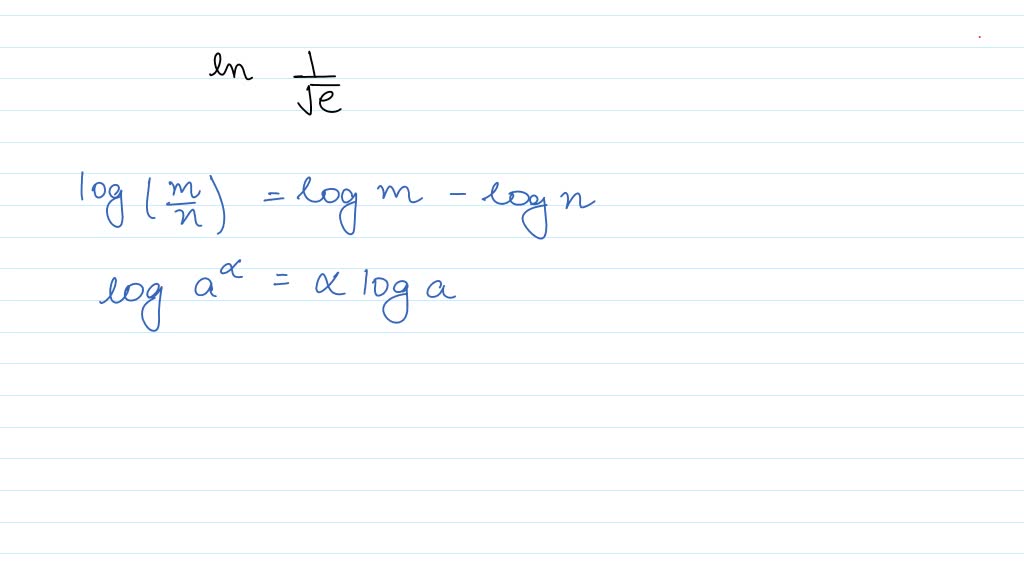 ln 1/√e
log (m/n) = log m - log n
log a^α = α log a